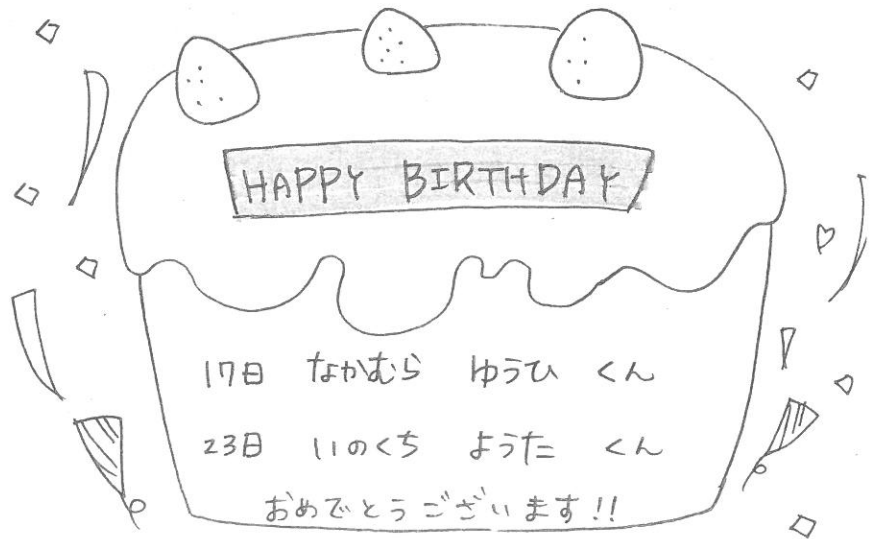 HAPPY BIRTHDAY
17日 なかむら ゆうひ くん
23日 いのくち ようた くん
おめでとうございます!!